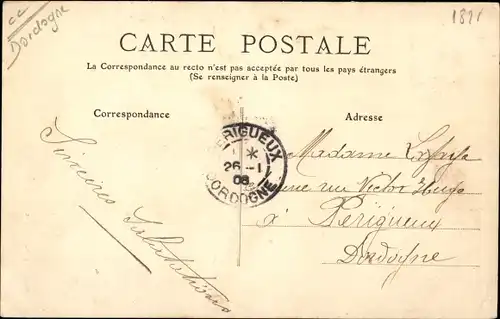 cc
Dordogne
1821
CARTE POSTALE
La Correspondance au recto n'est pas acceptée par tous les pays étrangers
(Se renseigner à la Poste)
Correspondance
Adresse
PERIGUEUX
*
26 -1
08
DORDOGNE
Sincères Salutations
Madame
rue Victor Hugo
à Périgueux
Dordogne